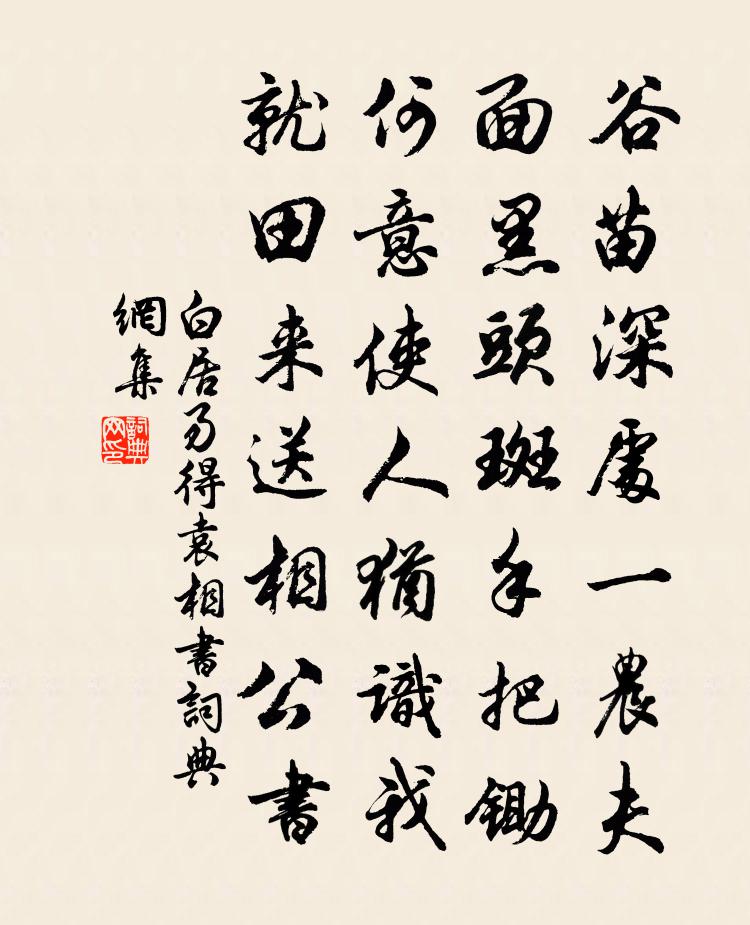 谷苗深處一農夫
面黑頭斑手把鋤
何意使人猶識我
就田来送相公書
白居易得袁相書詞典
網集
詞典网印